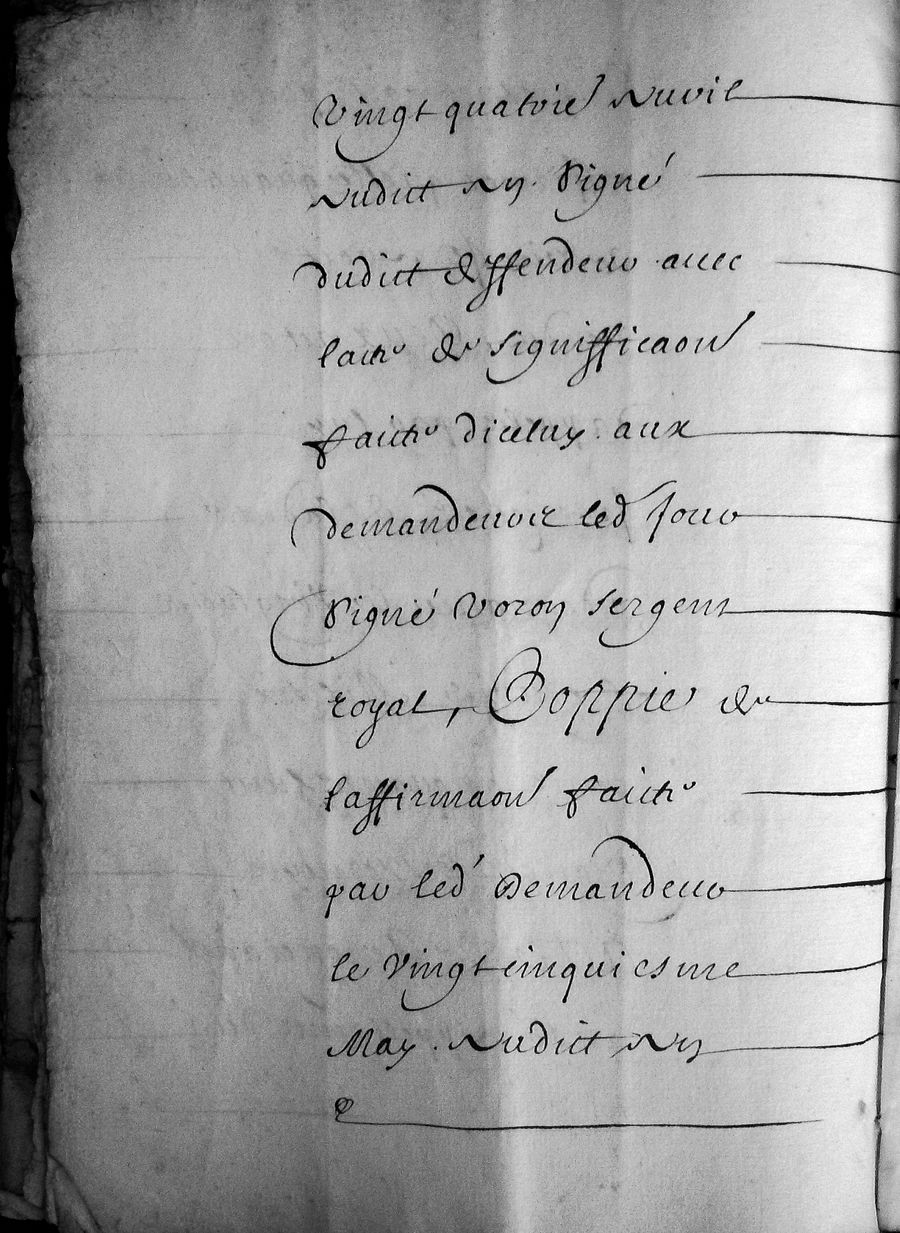 Vingt quatrie Avril
Audict An. Signé
dudict deffendeur avec
lacte de signifficaon
faicte diceluy aux
demandeurs led jour
Signé Voron sergent
royal, Coppie de
laffirmaon faicte
par led demandeur
le Vingt cinquiesme
May. Audict An